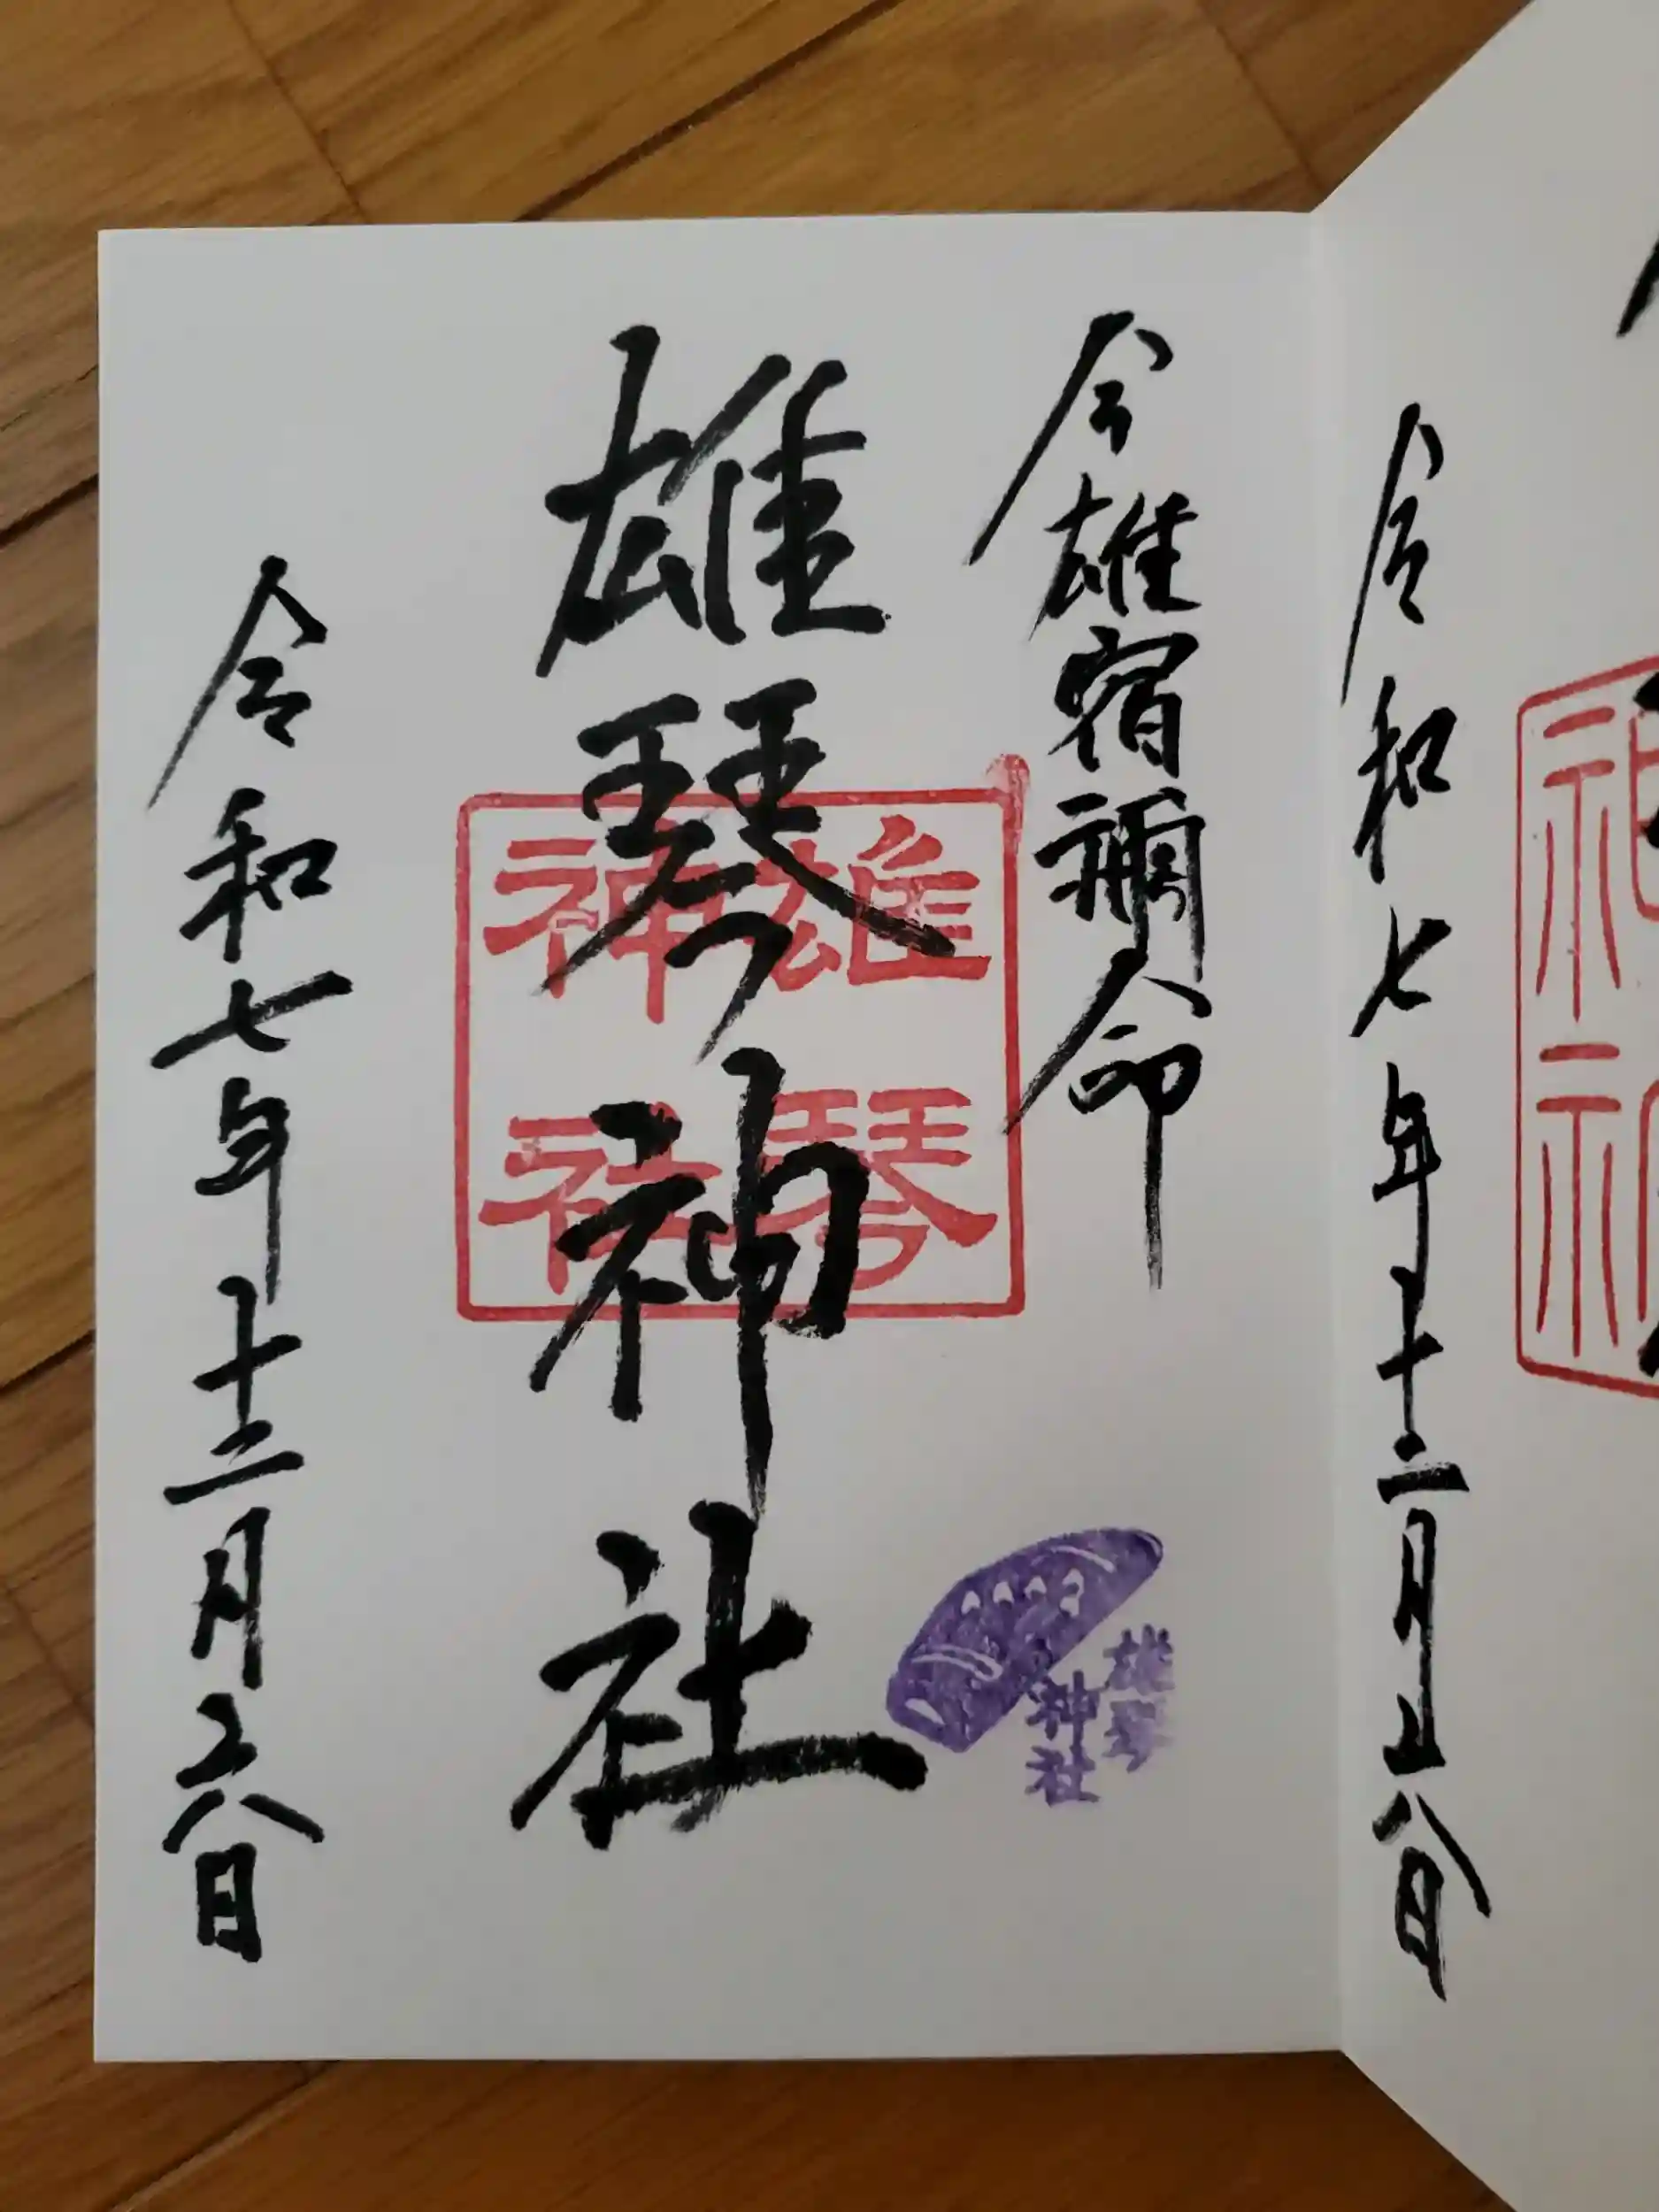 令和七年十二月二八日
今雄宿禰命
雄琴神社
雄琴
神社
雄琴
神社
令和七年十二月二八日